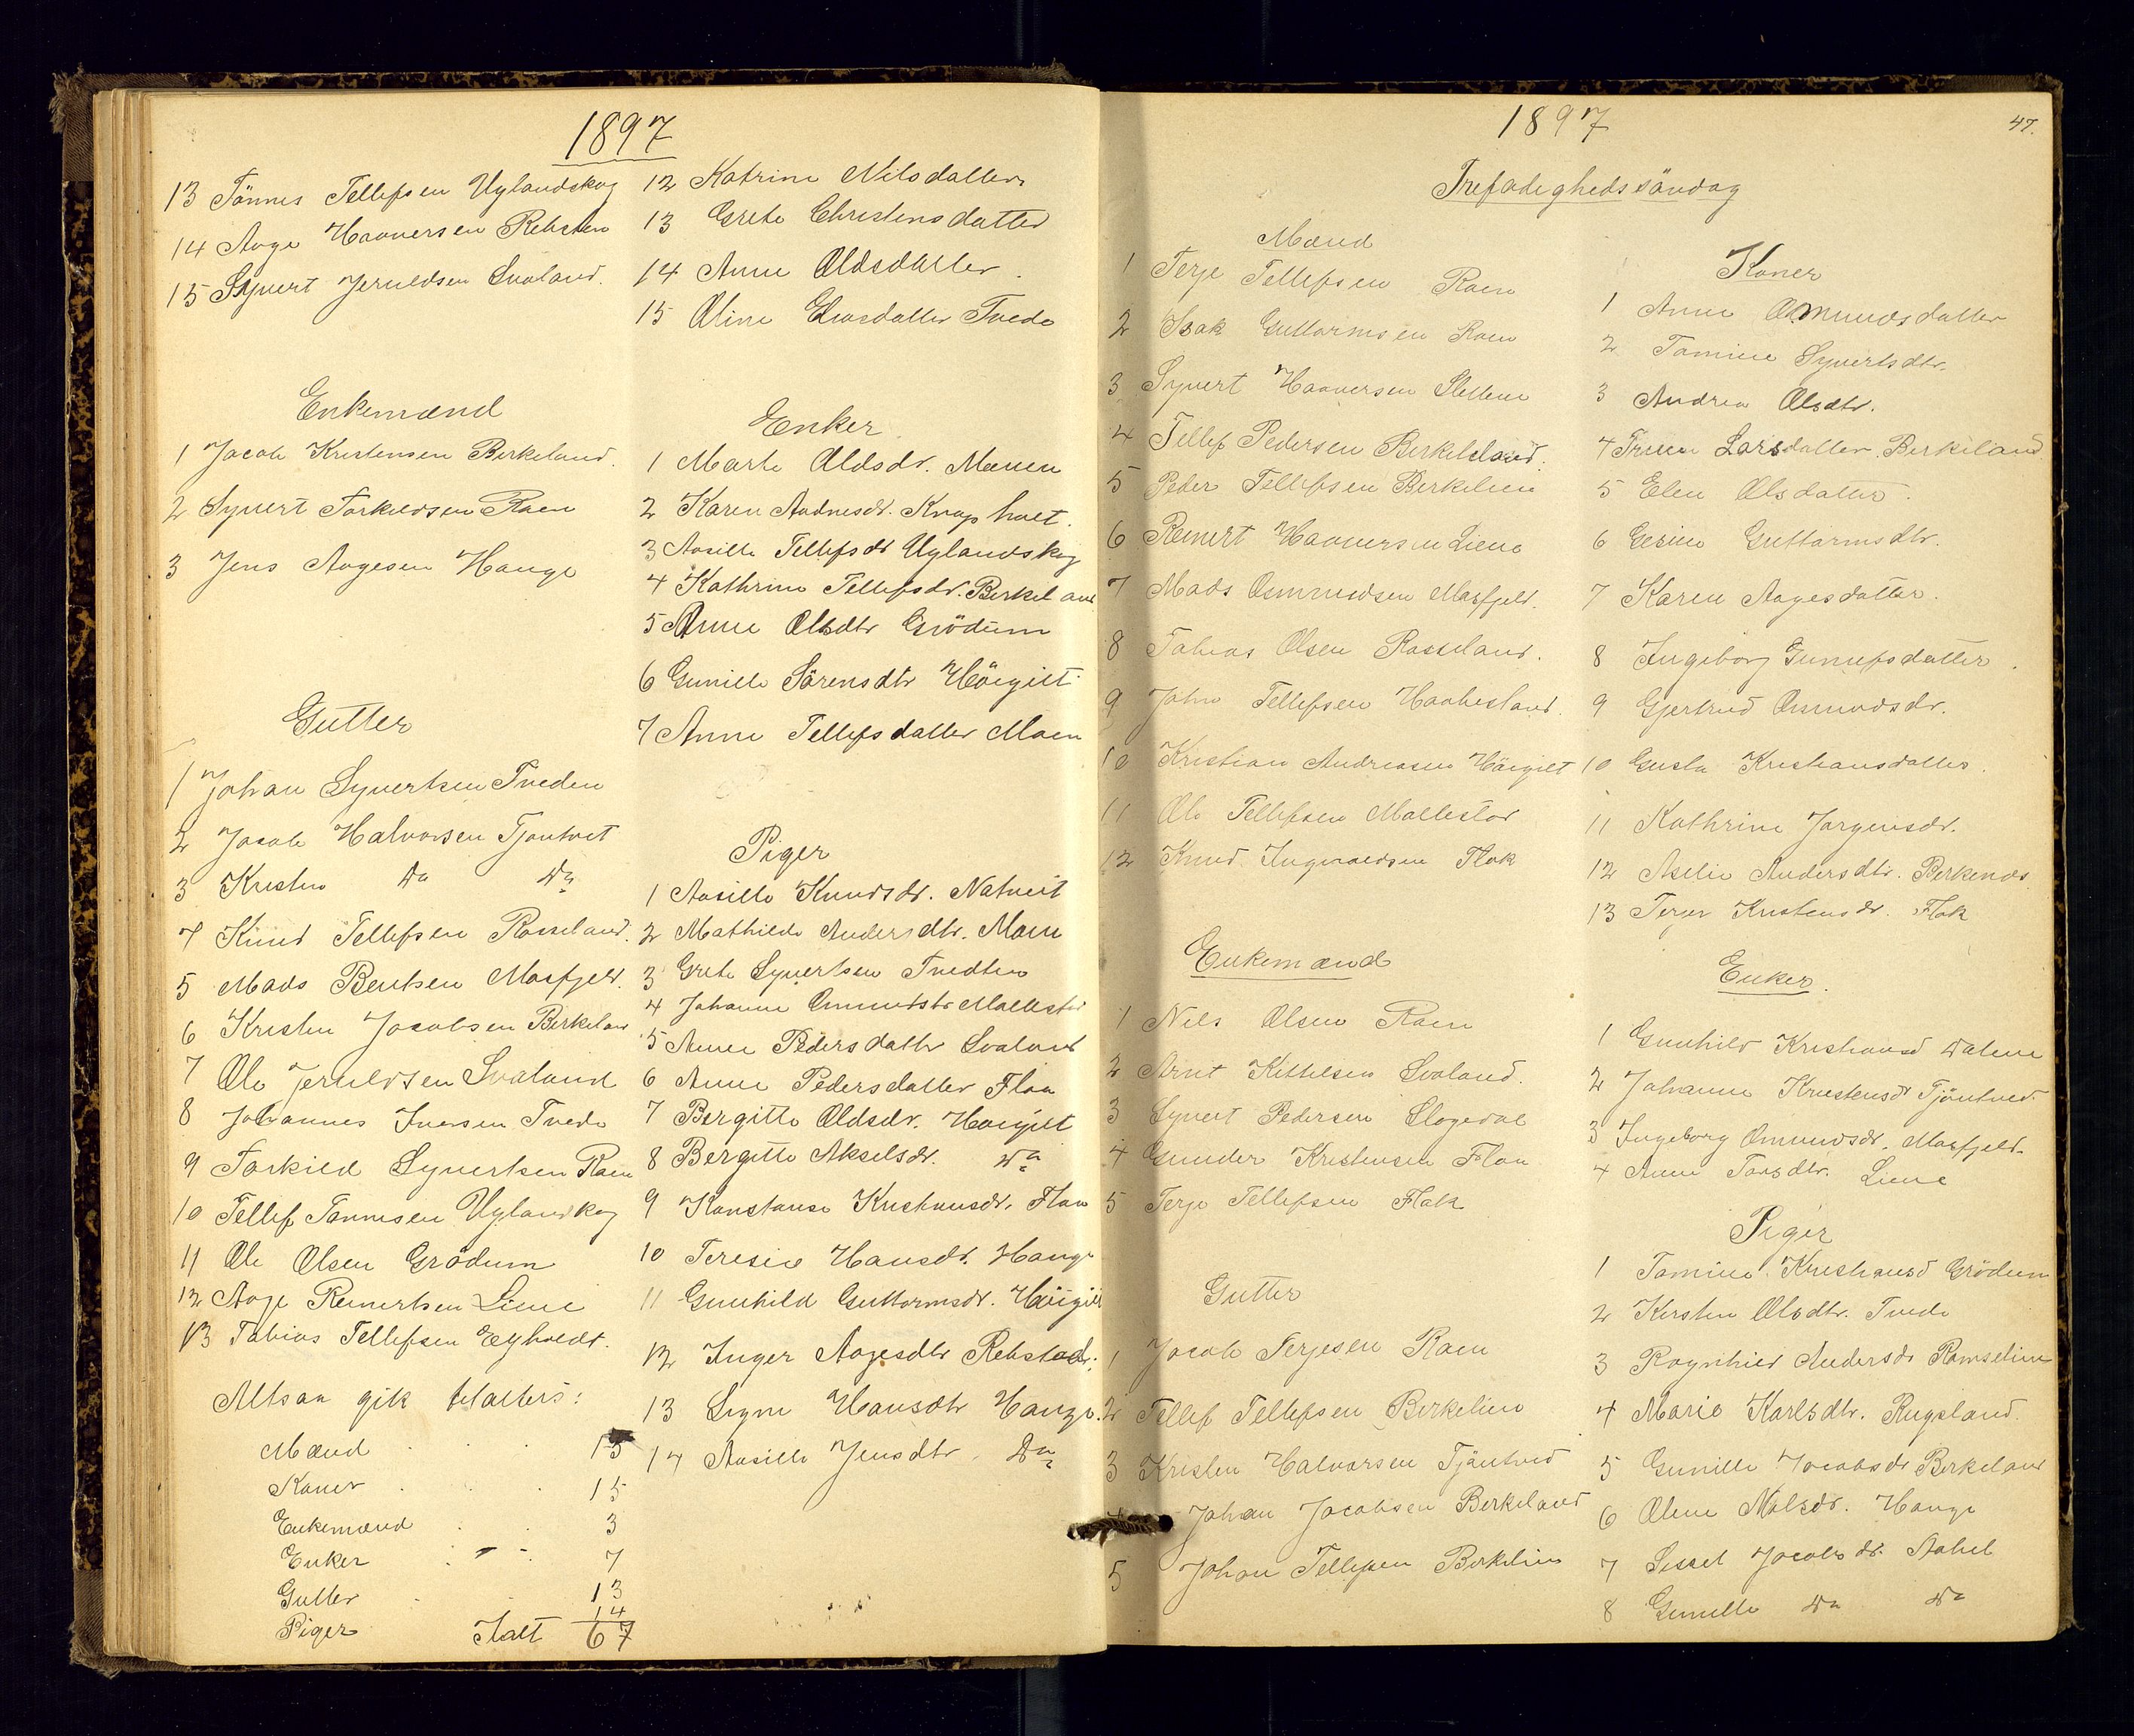 1897
13 Tönnes Tellefsen Uglandskog
14 Aage Haaversen Rebsten
15 Syvert Jeruldsen Svaland.
Enkemænd
1 Jacob Kristensen Birkeland.
2 Syvert Torkildsen Raen
3 Jens Aagesen Hauge
Gutter
1 Johan Syvertsen Tveden
2 Jacob Halvorsen Tjøntvet
3 Kristen Do Do
4 Knud Tellefsen Rosseland.
5 Mads Bentsen Masfjeld.
6 Kristen Jacobsen Birkeland
7 Ole Jeruldsen Svaland
8 Johannes Iversen Tvede
9 Torkild Syvertsen Raen
10 Tellef Tønnesen Uglandskog
11 Ole Olsen Grödum
12 Aage Reinertsen Liene
13 Tobias Tellefsen
Altsaa gik tilalters:
Mænd 15
Koner 15
Enkemænd 3
Enker 7
Gutter 13
Piger 14
Ialt 67
12 Katrine Nilsdatter
13 Grete Christensdatter
14 Anne Oldsdatter.
15 Oline Tvede
Enker
1 Marte Oldsdr. Moen
2 Karen Andresdr. Knapholt.
3 Aasille Tellefsdr Uglandskog
4 Kathrine Tellefsdr. Berkeland
5 Anne Olsdtr Grödum
6 Gunille Sörensdtr Höigilt
7 Anne Tellefsdatter Moen
Piger
1 Aasille Knudsdr. Natveit
2 Mathilde Andersdtr. Moen
3 Grete Syvertsen Tvedten
4 Johanne Omundsdr Mollestad
5 Anne Pedersdatter Svaland
6 Anne Pedersdatter Flaa
7 Bergitte Oldsdr. Høigilt
8 Bergitte Akselsdr. Do
9 Konstanse Kristiansdr. Flaa
10 Teresie Hansdr. Hauge
11 Gunhild Guttormsdr. Höigilt
12 Inger Aagesdtr Rebstad.
13 Signe Hansdtr Hauge.
14 Aasille Jensdtr. Do
1897
47.
Trefoldighedssöndag
Mænd
1 Terje Tellefsen Raen
2 Isak Guttormsen Raen
3 Syvert Haaversen Slettene
4 Tellef Pedersen Berkeland.
5 Peder Tellefsen Berkelien
6 Reinert Haaversen Liene
7 Mads Osmundsen Masfjeld.
8 Tobias Olsen Rosseland.
9 John Tellefsen Haabesland.
10 Kristian Andreasen Höigilt
11 Ole Tellefsen Mollestad
12 Knud Ingvaldsen Flak
Enkemænd
1 Nils Olsen Raen
2 Arnt Kittelsen Svaland.
3 Syvert Pedersen Slogedal
4 Gunder Kristensen Flaa
5 Terje Tellefsen Flak
Gutter
1 Jacob Terjesen Raen
2 Tellef Tellefsen Berkelien
3 Kristen Halvorsen Tjäntved
4 Johan Jacobsen Berkeland
5 Johan Tellefsen Berkelien
Koner
1 Anne Omundsdatter
2 Tomine Syvertsdtr.
3 Andrea Olsdtr.
4 Larsdatter. Berkeland
5 Elen Olsdatter.
6 Gesine Guttormsdtr.
7 Karen Aagesdatter.
8 Ingeborg Gunulfsdatter.
9 Gjertrud Osmundsdr.
10 Gusta Kristiansdatter.
11 Kathrine Jørgensdr.
12 Aselie Andersdtr.
13 Terjer Kristensdr. Flak
Enker.
1 Gunhild Kristiansd Dalene
2 Johanne Kristensdr Tjöntved.
3 Ingeborg Omundsdr. Masfjeld.
4 Anne Liene
Piger
1 Tomine Kristiansd Grödum
2 Kirsten Olsdtr. Tvede
3 Ragnhild Andersdr Romselien
4 Marie Karlsdtr. Rugsland.
5 Gunille Jacobsdr Berkeland
6 Olene Nilsdr. Hauge
7 Sissel Jacobsdr.
8 Gunille Do Do